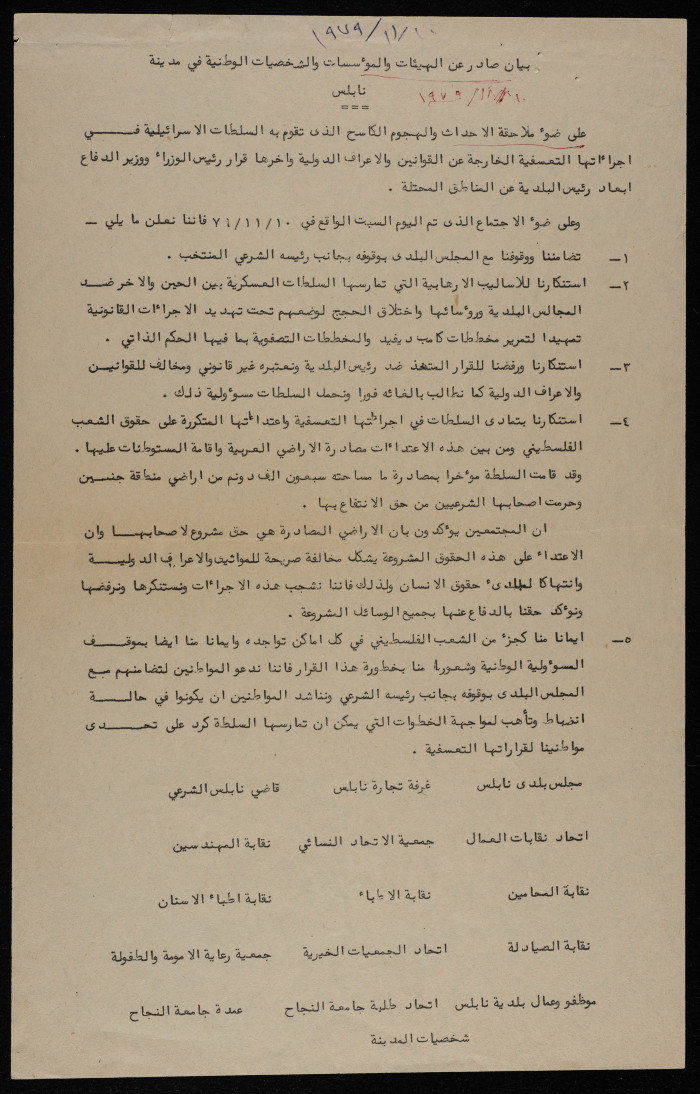 ١٩٧٩/١١/١٠
بيان صادر عن الهيئات والمؤسسات والشخصيات الوطنية في مدينة
نابلس
===
١٩٧٩/١١/١٠
على ضوء ملاحقة الاحداث والهجوم الكاسح الذى تقوم به السلطات الاسرائيلية فـــي
اجراءاتها التعسفية الخارجة عن القوانين والاعراف الدولية واخرها قرار رئيس الوزراء ووزير الدفاع
ابعاد رئيس البلدية عن المناطق المحتلة .
وعلى ضوء الاجتماع الذى تم اليوم السبت الواقع في ٧٩/١١/١٠ فاننا نعلن ما يلي ــ
١ــ تضامننا ووقوفنا مع المجلس البلدى بوقوفه بجانب رئيسه الشرعي المنتخب .
٢ــ استنكارنا للاساليب الارهابية التي تمارسها السلطات العسكرية بين الحين والاخر ضــد
المجالس البلدية وروءسائها واختلاق الحجج لوضعهم تحت تهديد الاجراءات القانونية
تمهيدا لتمرير مخططات كامب ديفيد والمخططات التصفوية بما فيها الحكم الذاتي .
٣ــ استنكارنا ورفضنا للقرار المتخذ ضد رئيس البلدية ونعتبره غير قانوني ومخالف للقوانيــن
والاعراف الدولية كما نطالب بالغائه فورا ونحمل السلطات مسوءولية ذلك .
٤ــ استنكارنا بتمادى السلطات في اجراءاتها التعسفية واعتداءاتها المتكررة على حقوق الشعب
الفلسطيني ومن بين هذه الاعتداءات مصادرة الاراضي العربية واقامة المستوطنات عليها .
وقد قامت السلطة موءخرا بمصادرة ما مساحته سبعون الف دونم من اراضي منطقة جنـــين
وحرمت اصحابها الشرعيين من حق الانتفاع بها .
ان المجتمعين يوءكدون بان الاراضي المصادرة هي حق مشروع لاصحابهــا وان
الاعتداء على هذه الحقوق المشروعة يشكل مخالفة صريحة للمواثيق والاعراف الدوليــة
وانتهاكا لمبادىء حقوق الانسان ولذلك فاننا نشجب هذه الاجراءات ونستنكرها ونرفضها
ونوءكد حقنا بالدفاع عنها بجميع الوسائل المشروعة .
٥ــ ايمانا منا كجزء من الشعب الفلسطيني في كل اماكن تواجده وايمانا منا ايضا بموقــف
المسوءولية الوطنية وشعورا منا بخطورة هذا القرار فاننا ندعو المواطنين لتضامنهم مــع
المجلس البلدى بوقوفه بجانب رئيسه الشرعي ونناشد المواطنين ان يكونوا في حالـــة
انضباط وتأهب لمواجهة الخطوات التي يمكن ان تمارسها السلطة كرد على تحـــدى
مواطنينا لقراراتها التعسفية .
مجلس بلدى نابلس غرفة تجارة نابلس قاضي نابلس الشرعي
اتحاد نقابات العمال جمعية الاتحاد النسائي نقابة المهندسين
نقابة المحامين نقابة الاطباء نقابة اطباء الاسنان
نقابة الصيادلة اتحاد الجمعيات الخيرية جمعية رعاية الامومة والطفولة
موظفو وعمال بلدية نابلس اتحاد طلبة جامعة النجاح عمدة جامعة النجاح
شخصيات المدينة